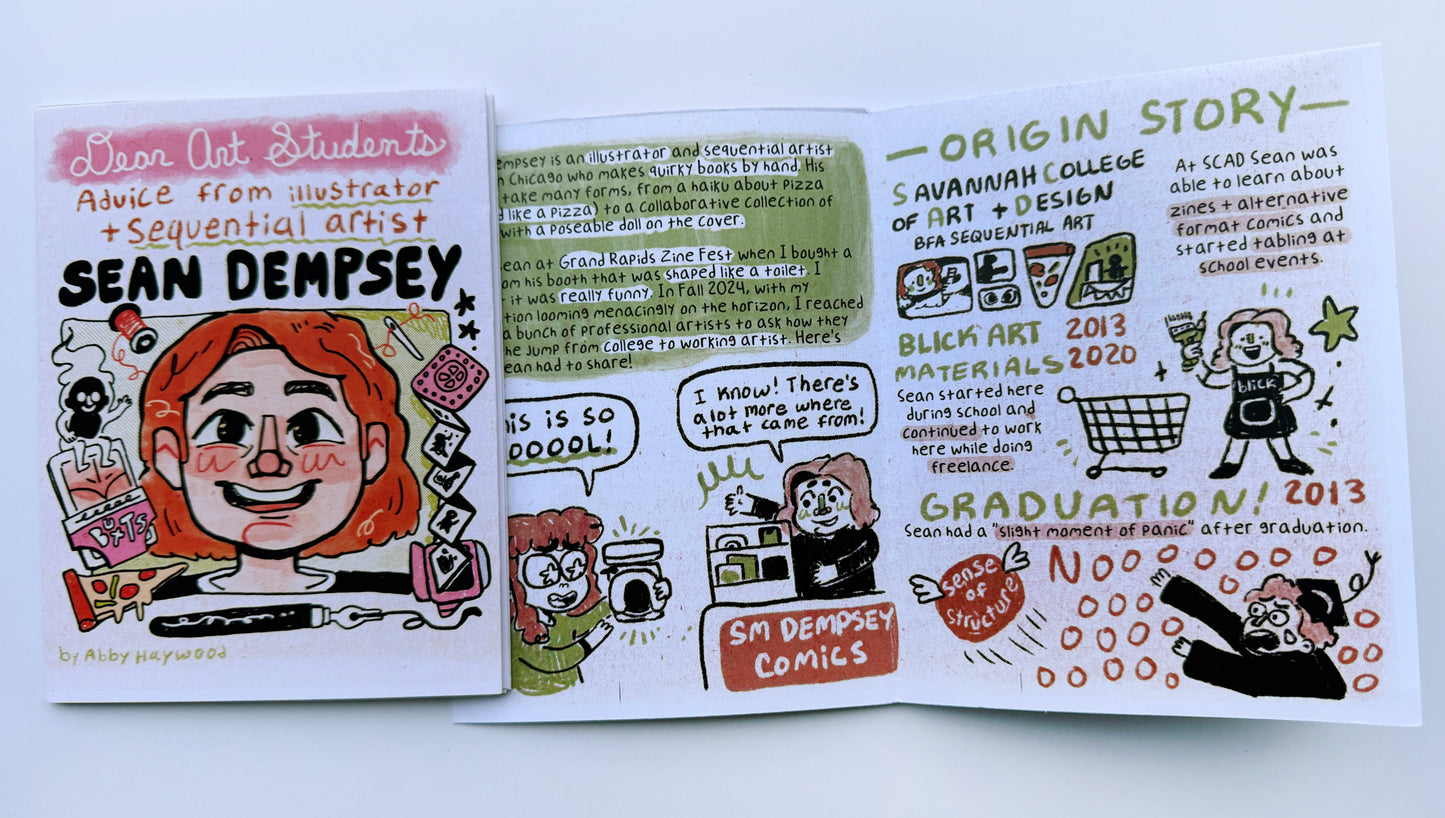 Dear Art Students
Advice from illustrator
+ Sequential artist
SEAN DEMPSEY
BUTTS
by Abby Haywood
empsey is an illustrator and sequential artist
n Chicago who makes quirky books by hand. His
take many forms, from a haiku about pizza
d like a pizza) to a collaborative collection of
with a poseable doll on the cover.
ean at Grand Rapids Zine Fest when I bought a
om his booth that was shaped like a toilet. I
it was really funny. In Fall 2024, with my
tion looming menacingly on the horizon, I reached
a bunch of professional artists to ask how they
he jump from college to working artist. Here's
ean had to share!
his is so
OOOOL!
I know! There's
a lot more where
that came from!
SM DEMPSEY
COMICS
—ORIGIN STORY—
SAVANNAH COLLEGE
OF ART + DESIGN
BFA SEQUENTIAL ART
At SCAD Sean was
able to learn about
zines + alternative
format comics and
started tabling at
school events.
BLICK ART 2013
MATERIALS 2020
Sean started here
during school and
continued to work
here while doing
freelance.
blick
GRADUATION! 2013
Sean had a "slight moment of panic" after graduation.
Sense
of
Structure
NOOOOOOO